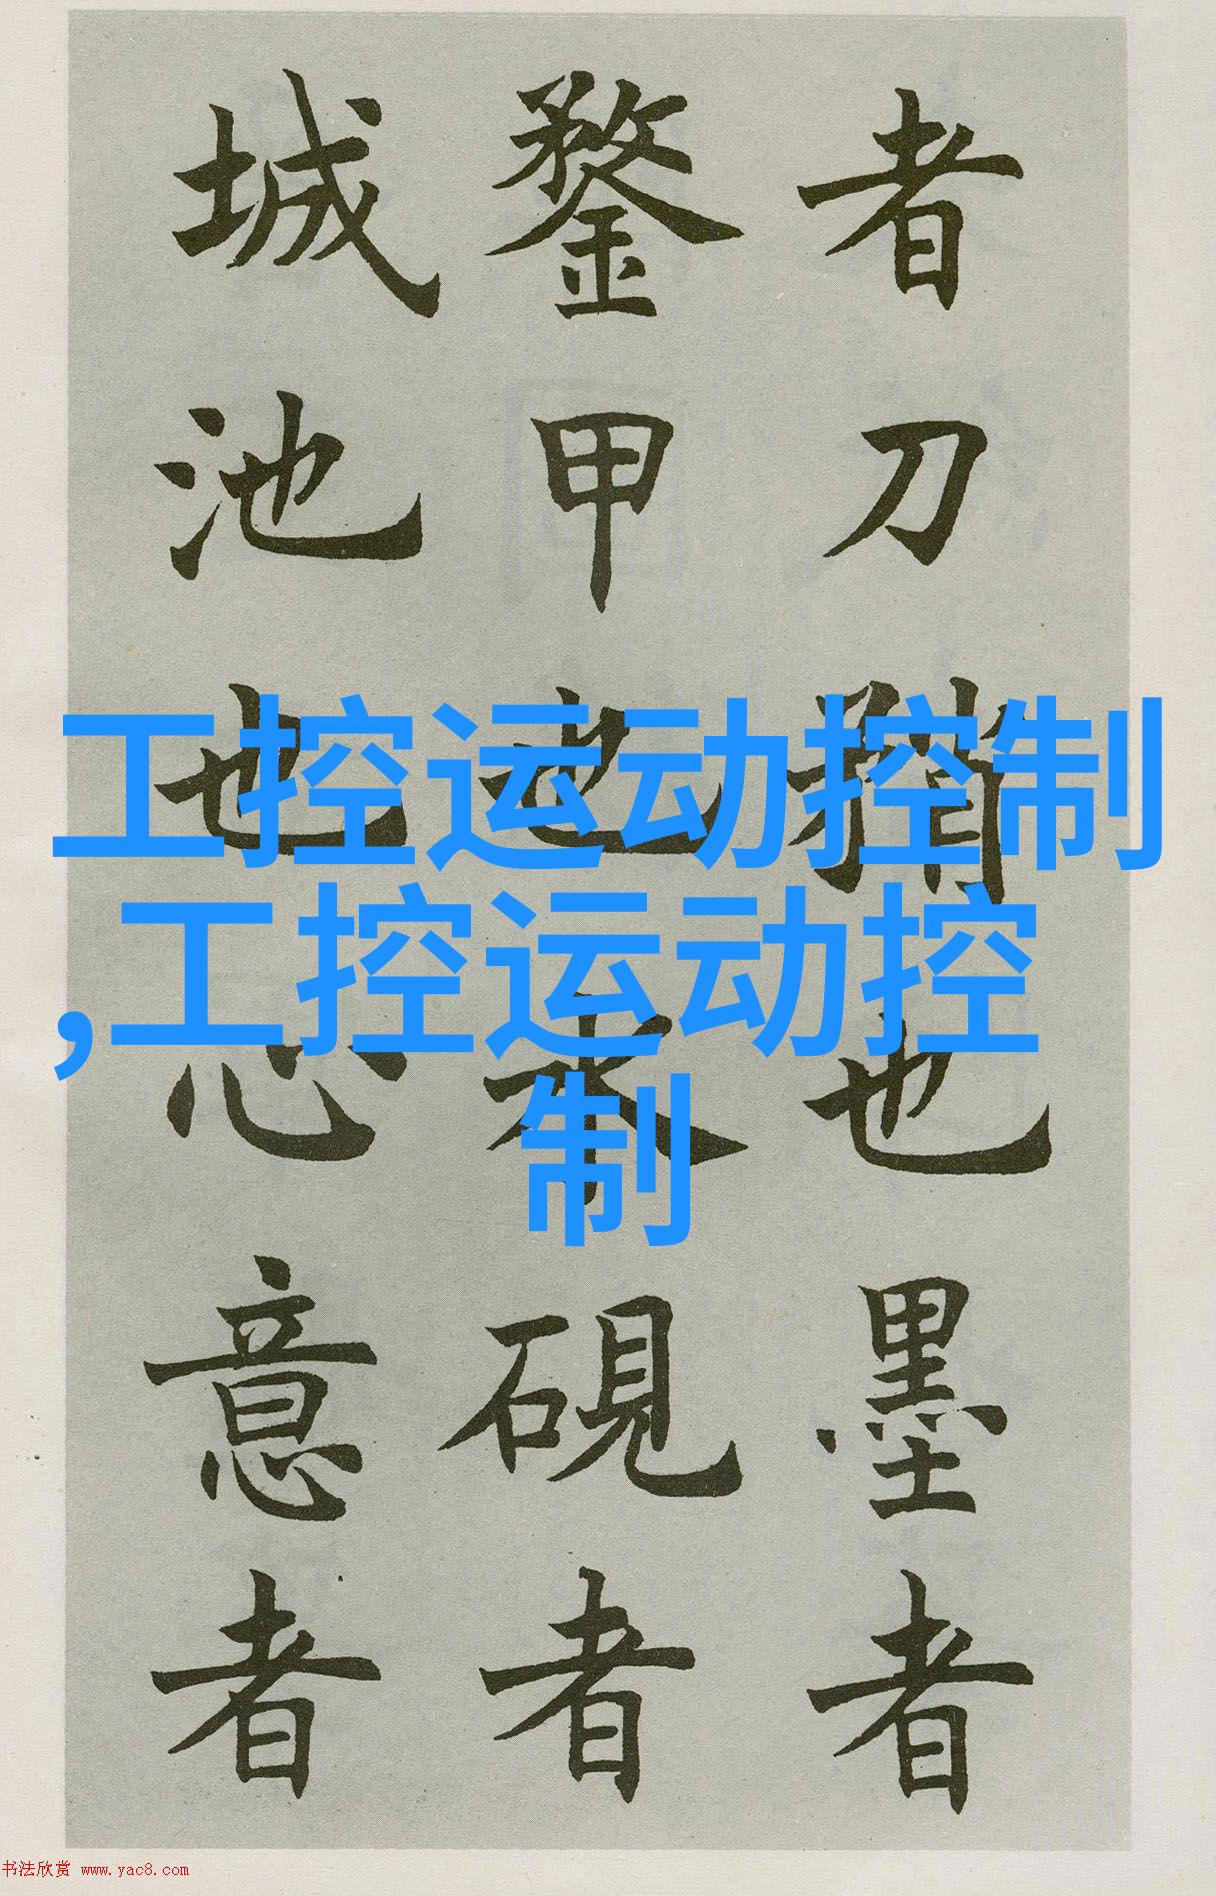 者刀矟也墨者
鍪甲也水硯者
城池也心意者
工控运动控制
,工控运动控
制
书法欣赏 www.yac8.com